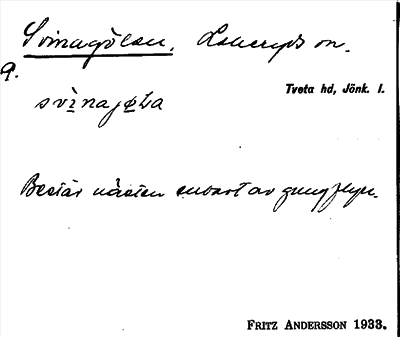 Svinagölen, Lekeryds sn.
9.
svìnajøLa
Tveta hd, Jönk. l.
Består nästan enbart av gungflyn.
FRITZ ANDERSSON 1933.